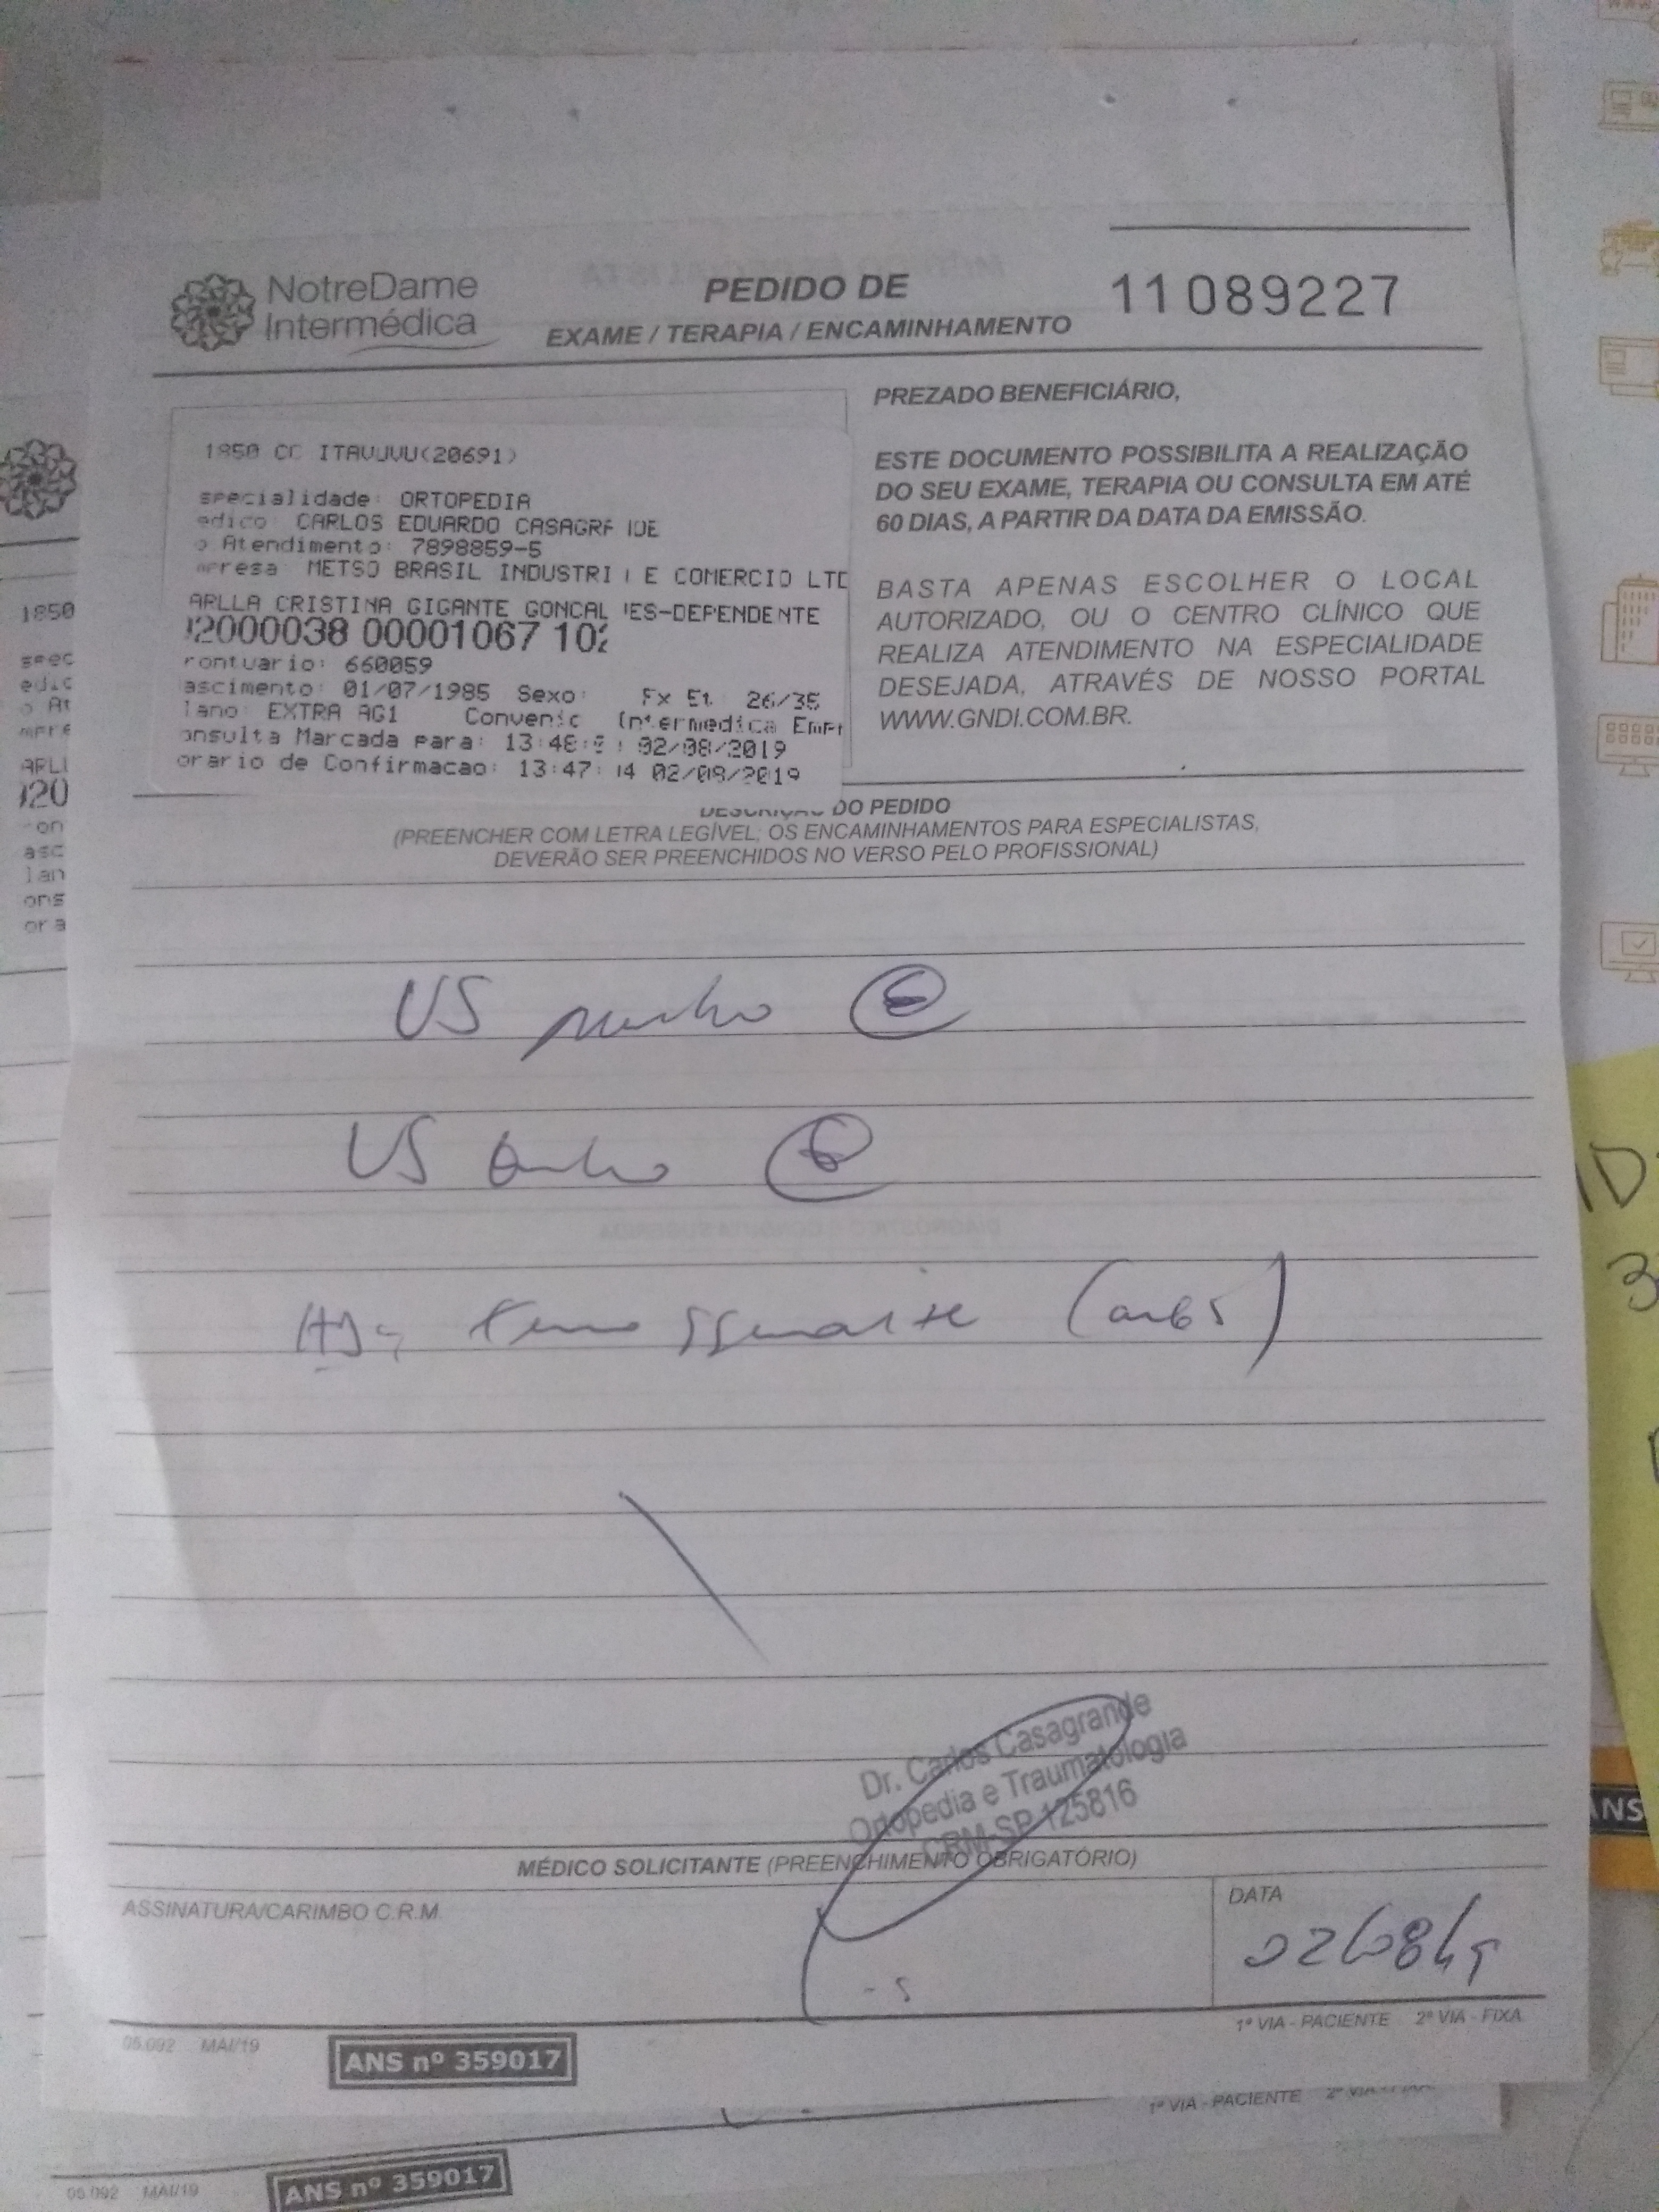 NotreDame
Intermédica
PEDIDO DE
EXAME / TERAPIA / ENCAMINHAMENTO
11089227
1850 CC ITAVUVU(20691)
specialidade: ORTOPEDIA
edico: CARLOS EDUARDO CASAGRA IDE
o Atendimento: 7898859-5
mpresa METSO BRASIL INDUSTRI E COMERCIO LTD
ARLLA CRISTINA GIGANTE GONCAL ES-DEPENDENTE
2000038 00001067 102
rontuario: 660059
ascimento: 01/07/1985 Sexo: Fx Et. 26/35
lano: EXTRA AG1 Convenic Intermedica Empr
onsulta Marcada para: 13:48: 02/08/2019
orario de Confirmacao: 13:47: 14 02/08/2019
PREZADO BENEFICIÁRIO,
ESTE DOCUMENTO POSSIBILITA A REALIZAÇÃO
DO SEU EXAME, TERAPIA OU CONSULTA EM ATÉ
60 DIAS, A PARTIR DA DATA DA EMISSÃO.
BASTA APENAS ESCOLHER O LOCAL
AUTORIZADO, OU O CENTRO CLÍNICO QUE
REALIZA ATENDIMENTO NA ESPECIALIDADE
DESEJADA, ATRAVÉS DE NOSSO PORTAL
WWW.GNDI.COM.BR.
DESCRIÇÃO DO PEDIDO
(PREENCHER COM LETRA LEGÍVEL; OS ENCAMINHAMENTOS PARA ESPECIALISTAS,
DEVERÃO SER PREENCHIDOS NO VERSO PELO PROFISSIONAL)
US punho E
US E
HD:
Dr. Carlos Casagrande
Ortopedia e Traumatologia
CRM-SP 125816
MÉDICO SOLICITANTE (PREENCHIMENTO OBRIGATÓRIO)
ASSINATURA/CARIMBO C.R.M.
DATA
02/08/19
1ª VIA - PACIENTE 2ª VIA - FIXA
05.092 MAI/19
ANS nº 359017
1ª VIA - PACIENTE 2ª VIA - FIXA
05.092 MAI/19
ANS nº 359017